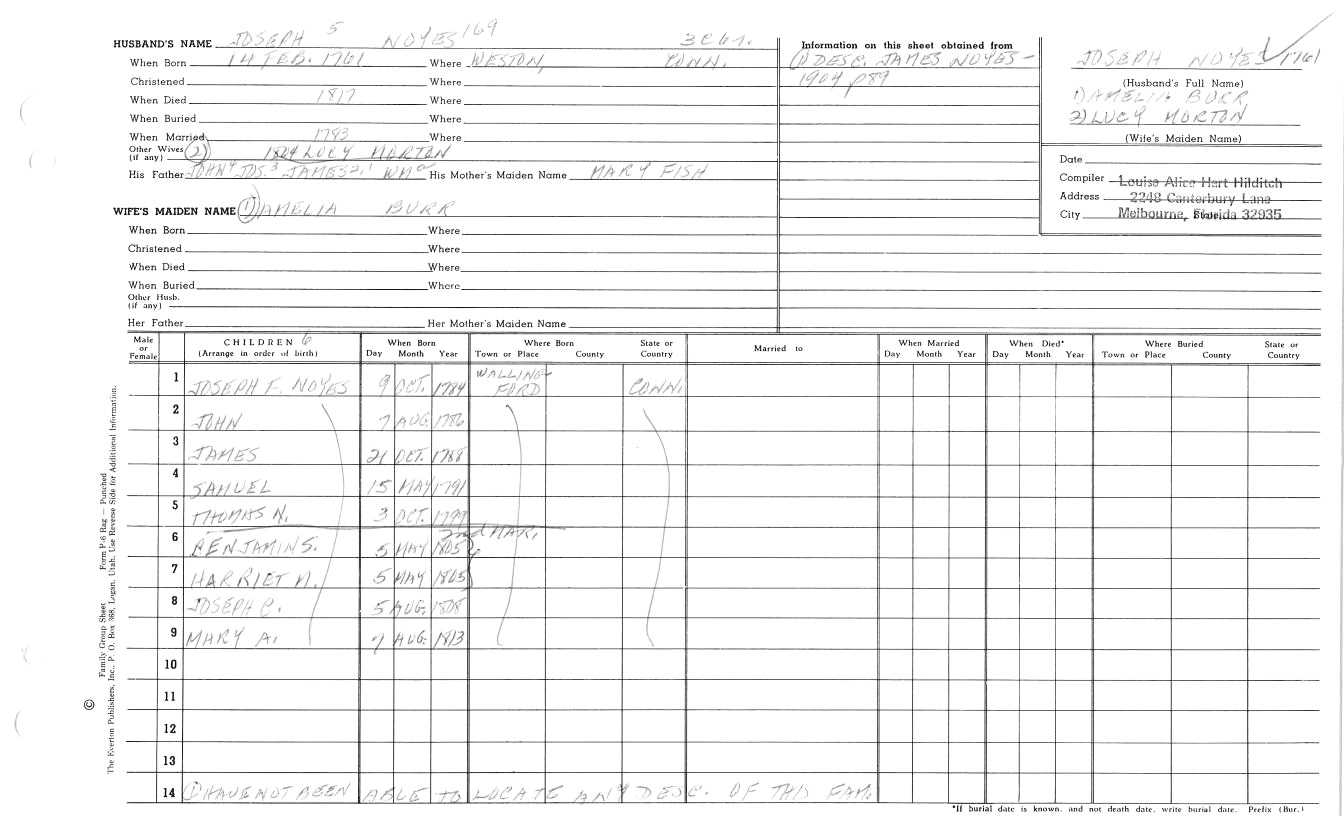 HUSBAND'S NAME JOSEPH 5 NOYES 169
When Born 14 FEB. 1761 Where WESTON, CONN.
Christened Where
When Died 1817 Where
When Buried Where
When Married 1783 Where
Other Wives (if any) (2) 1804 LUCY MORTON
His Father JOHN 4 JOS. 3 JAMES 2, 1 WM His Mother's Maiden Name MARY FISH
WIFE'S MAIDEN NAME (1) AMELIA BURR
When Born Where
Christened Where
When Died Where
When Buried Where
Other Husb. (if any)
Her Father Her Mother's Maiden Name
Information on this sheet obtained from
(1) DESC. JAMES NOYES -
1904 p89
JOSEPH NOYES 1761
(Husband's Full Name)
1) AMELIA BURR
2) LUCY MORTON
(Wife's Maiden Name)
Date
Compiler Louise Alice Hart Hilditch
Address 2248 Canterbury Lane
City Melbourne, Florida 32935
Male or Female CHILDREN 6 (Arrange in order of birth) When Born Day Month Year Where Born Town or Place County State or Country Married to When Married Day Month Year When Died* Day Month Year Where Buried Town or Place County State or Country
1 JOSEPH F. NOYES 9 OCT. 1784 WALLINGFORD CONN.
2 JOHN 7 AUG 1786
3 JAMES 21 OCT. 1788
4 SAMUEL 15 MAY 1791
5 THOMAS N. 3 OCT. 1799
2nd MAR.
6 BENJAMIN S. 5 MAY 1805
7 HARRIET N. 5 MAY 1805
8 JOSEPH C. 5 AUG. 1808
9 MARY A. 7 AUG. 1813
10
11
12
13
14 (1) HAVE NOT BEEN ABLE TO LOCATE ANY DESC. OF THIS FAM.
*If burial date is known, and not death date, write burial date. Prefix (Bur.)
Family Group Sheet Form P-6 Rag — Punched
© The Everton Publishers, Inc., P. O. Box 368, Logan, Utah. Use Reverse Side for Additional Information.